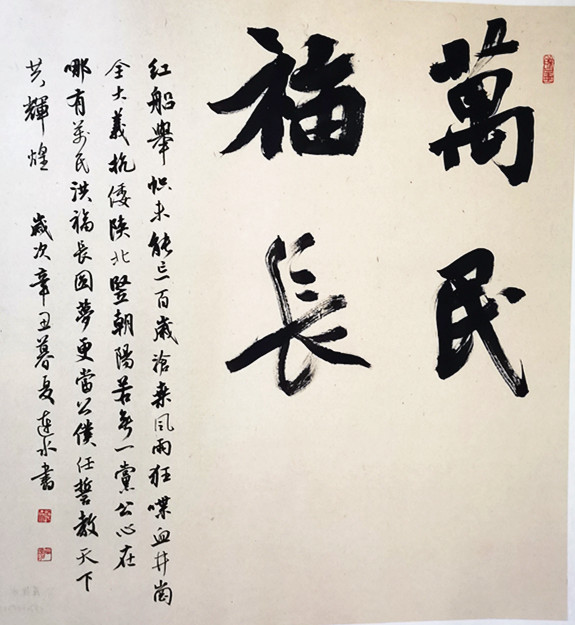 萬民
福長
紅船舉幟未能忘百歲滄桑風雨狂喋血井崗
全大義抗倭陝北豎朝陽若無一黨公心在
哪有萬民洪福長圆夢更當公僕任誓教天下
共輝煌 歲次辛丑暮夏連水書